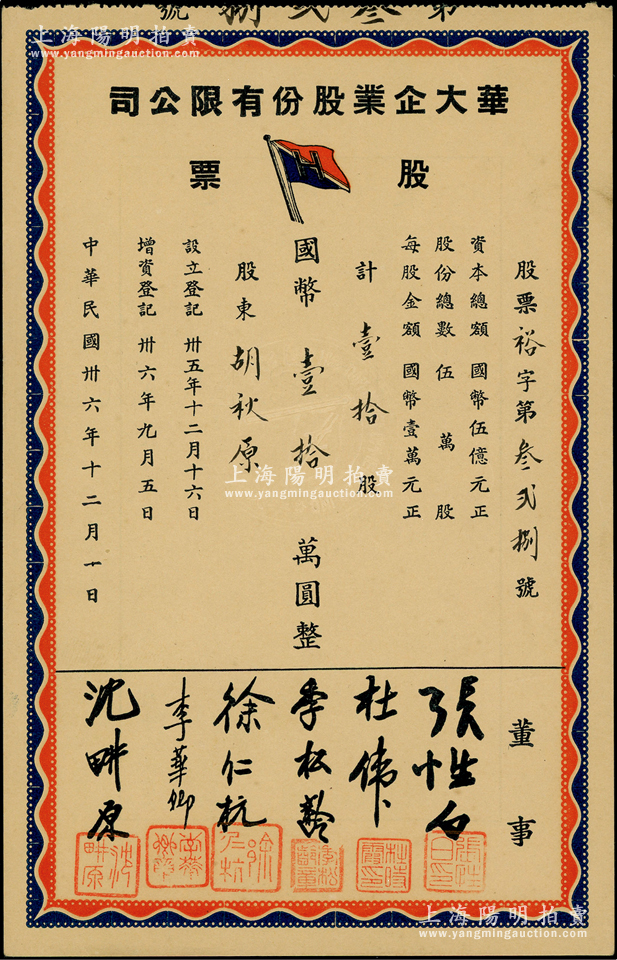 第叁弍捌號
上海陽明拍賣
www.yangmingauction.com
華大企業股份有限公司
股票
H
股票裕字第叁弍捌號
資本總額 國幣伍億元正
股份總數 伍萬股
每股金額 國幣壹萬元正
計壹拾股
國幣壹拾萬圓整
股東 胡秋原
設立登記 卅五年十二月十六日
增資登記 卅六年九月五日
中華民國卅六年十二月一日
上海陽明拍賣
www.yangmingauction.com
董事
張性白
杜偉
季松齡
徐仁杭
李華卿
沈畊原
張性白印
徐仁杭
沈畊原
上海陽明拍賣
www.yangmingauction.com